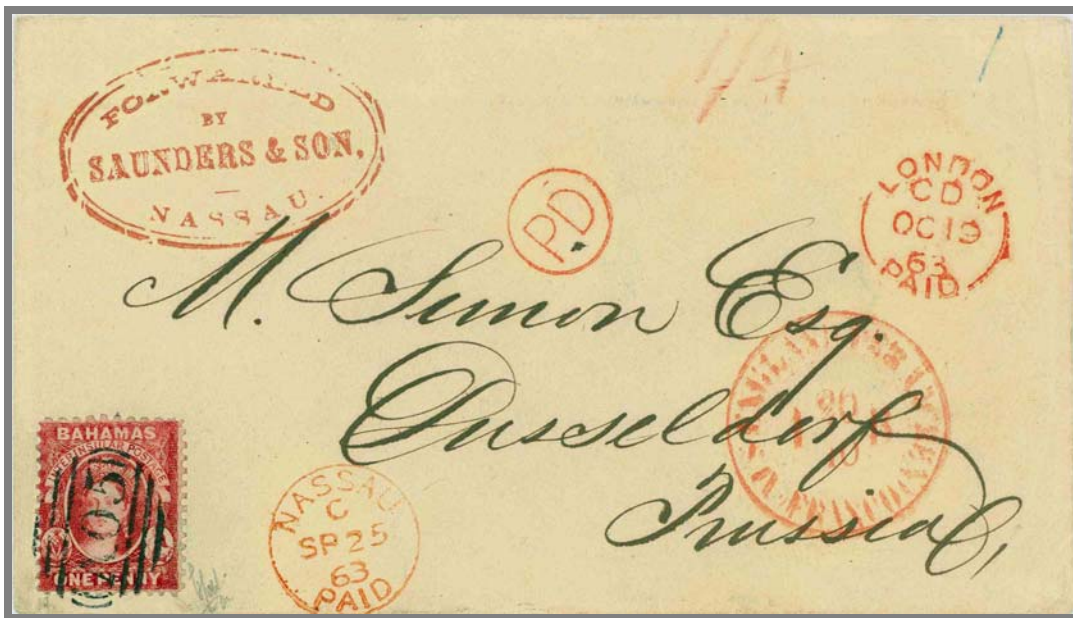 FORWARDED
BY
SAUNDERS & SON,
NASSAU.
1/4
1
PD
LONDON
CD
OC 19
63
PAID
M. Simon Esq.
Dusseldorf
Prussia
20
10
FRANCO
BAHAMAS
INTERINSULAR POSTAGE
ONE PENNY
05
NASSAU
C
SP 25
63
PAID